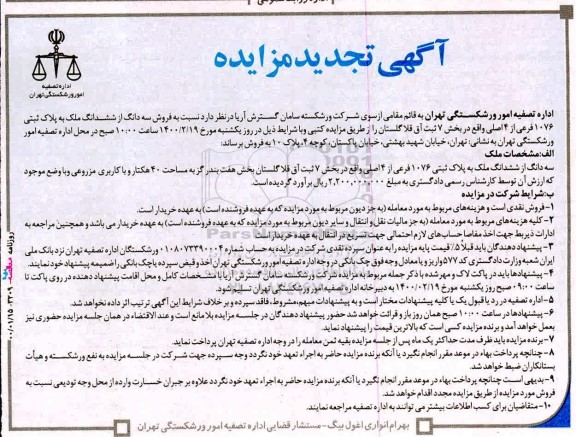 آگهی تجدید مزایده
اداره تصفیه
امور ورشکستگی تهران
اداره تصفیه امور ورشکستگی تهران به قائم مقامی ازسوی شرکت ورشکسته سامان گسترش آریا درنظر دارد نسبت به فروش سه دانگ از ششدانگ ملک به پلاک ثبتی
۱۰۷۶ فرعی از ۴ اصلی واقع در بخش ۷ ثبت آق قلا گلستان را از طریق مزایده کتبی وبا شرایط ذیل در روز یکشنبه مورخ ۱۴۰۰/۲/۱۹ ساعت ۱۰:۰۰ صبح در محل اداره تصفیه امور
ورشکستگی تهران به نشانی: تهران، خیابان شهید بهشتی، خیابان پاکستان، کوچه ۴، پلاک ۱۰ به فروش برساند:
الف: مشخصات ملک
سه دانگ از ششدانگ ملک به پلاک ثبتی ۱۰۷۶ فرعی از ۴ اصلی واقع در بخش ۷ ثبت آق قلا گلستان بخش هفت بندر گز به مساحت ۴۰ هکتار و با کاربری مزروعی وبا وضع موجود
که ارزش آن توسط کارشناس رسمی دادگستری به مبلغ ۲،۲۰۰،۰۰۰،۰۰۰ ریال برآورد گردیده است.
ب: شرایط شرکت در مزایده
۱- فروش نقدی است و هزینه‌های مربوط به مورد معامله (به جز دیون مربوط به مورد مزایده که به عهده فروشنده است) به عهده خریدار است.
۲- کلیه هزینه‌های مربوط به مورد معامله (به جز مالیات نقل و انتقال و سایر دیون مربوط به مورد مزایده که به عهده فروشنده است) به عهده خریدار می باشد و همچنین مراجعه به
ادارات ذیربط جهت اخذ مفاصا حساب‌های لازم احتمالی جهت تسریع در انتقال به عهده خریدار است.
۳- پیشنهاد دهندگان باید قبلا ۵٪ قیمت پایه مزایده را به عنوان سپرده نقدی شرکت در مزایده به حساب شماره ۰۱۰۸۰۷۳۳۹۰۰۰۴ ورشکستگان اداره تصفیه تهران نزد بانک ملی
ایران شعبه وزارت دادگستری کد ۵۷۷ واریز و یا معادل وجه فوق چک بانکی در وجه اداره تصفیه امور ورشکستگی تهران أخذ و فیض سپرده یاچک بانکی را ضمیمه پیشنهاد خود نمایند.
۴- پیشنهادها باید در پاکت لاک و مهرشده با ذکر جمله مربوط به مزایده شرکت ورشکسته سامان گسترش آریا با مشخصات کامل و محل اقامت پیشنهاد دهنده در روی پاکت تا
ساعت ۰۹:۰۰ صبح روز یکشنبه مورخ ۱۴۰۰/۰۲/۱۹ به دبیرخانه اداره تصفیه امور ورشکستگی تهران تسلیم شود.
۵- اداره تصفیه در رد یا قبول یک یا کلیه پیشنهادات مختار است و به پیشنهادات مبهم، مشروط، فاقد سپرده و بر خلاف شرایط این آگهی ترتیب اثر داده نخواهد شد.
۶- پیشنهادها در ساعت ۱۰:۰۰ صبح همان روز باز و قرائت خواهد شد حضور پیشنهاد دهندگان در جلسه مزایده بلامانع است و عند الاقتضاء در همان جلسه مزایده حضوری نیز
بعمل خواهد آمد و برنده مزایده کسی است که بالاترین قیمت را پیشنهاد نماید.
۷- برنده مزایده باید ظرف مدت حداکثر یک ماه پس از جلسه مزایده بقیه ثمن معامله را در وجه اداره تصفیه تهران پرداخت نماید.
۸- چنانچه پرداخت بهاء در موعد مقرر انجام نگیرد یا آنکه برنده مزایده حاضر به اجراء تعهد خود نگردد وجه سپرده جهت شرکت در جلسه مزایده به نفع ورشکسته و هیأت
بستانکاران ضبط خواهد شد.
۹- بدیهی است چنانچه پرداخت بهاء در موعد مقرر انجام نگیرد یا آنکه برنده مزایده حاضر به اجراء تعهد خود نگردد علاوه بر جبران خسارت وارده از محل وجه تودیعی نسبت به
فروش مورد مزایده از طریق مزایده مجدد اقدام خواهد شد.
۱۰- متقاضیان برای کسب اطلاعات بیشتر می توانند به اداره تصفیه مراجعه نمایند.
بهرام انواری اغول بیگ- مستشار قضایی اداره تصفیه امور ورشکستگی تهران